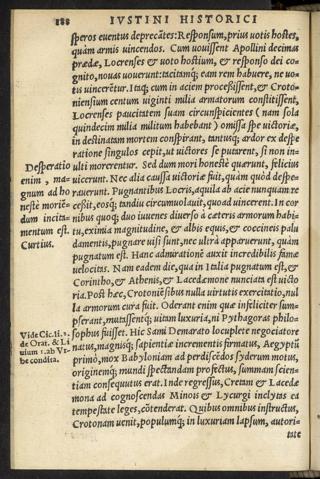 188 IVSTINI HISTORICI
speros euentus deprecãtes: Responsum, prius uotis hostes,
quàm armis uincendos. Cum uouissent Apollini decimas
prædæ, Locrenses & uoto hostium, & responso dei co-
gnito, nouas uouerunt: tacitamq́; eam rem habuere, ne uo-
tis uincerẽtur. Itaq; cum in aciem processissent, & Croto-
niensium centum uiginti milia armatorum constitissent,
Locrenses paucitatem suam circunspicientes (nam sola
quindecim milia militum habebant) omissa spe uictoriæ,
in destinatam mortem conspirant, tantusq́; ardor ex despe
ratione singulos cepit, ut uictores se putarent, si non in-
ulti morerentur. Sed dum mori honestè quærunt, felicius
uicerunt. Nec alia caussa uictoriæ fuit, quàm quòd despe-
rauerunt. Pugnantibus Locris, aquila ab acie nunquam re
cessit, eosq́; tandiu circumuolauit, quoad uincerent. In cor
nibus quoq; duo iuuenes diuerso à cæteris armorum habi-
tu, eximia magnitudine, & albis equis, & coccineis palu
damentis, pugnare uisi sunt, nec ultrà apparuerunt, quàm
pugnatum est. Hanc admirationẽ auxit incredibilis famæ
uelocitas. Nam eadem die, qua in Italia pugnatum est, &
Corintho, & Athenis, & Lacedæmone nunciata est uicto
ria. Post hæc, Crotoniẽsibus nulla uirtutis exercitatio, nul
la armorum cura fuit. Oderant enim quæ infeliciter sum-
pserant, mutassentq́; uitam luxuria, ni Pythagoras philo-
sophus fuisset. Hic Sami Demarato locuplete negociatore
natus, magnisq́; sapientiæ incrementis firmatus, Aegyptũ
primò, mox Babyloniam ad perdiscẽdos syderum motus,
originemq́; mundi spectandam profectus, summam scien-
tiam consequutus erat. Inde regressus, Cretam & Lacedæ
mona ad cognoscendas Minois & Lycurgi inclytas ea
tempestate leges, cõtenderat. Quibus omnibus instructus,
Crotonam uenit, populumq́; in luxuriam lapsum, autori-
tate
Desperatio
enim, ma-
gnum ad ho
nestè moriẽ=
dum incita-
mentum est.
Curtius.
Vide Cic. li. 2.
de Orat. & Li
uium 1. ab Vr-
be condita.